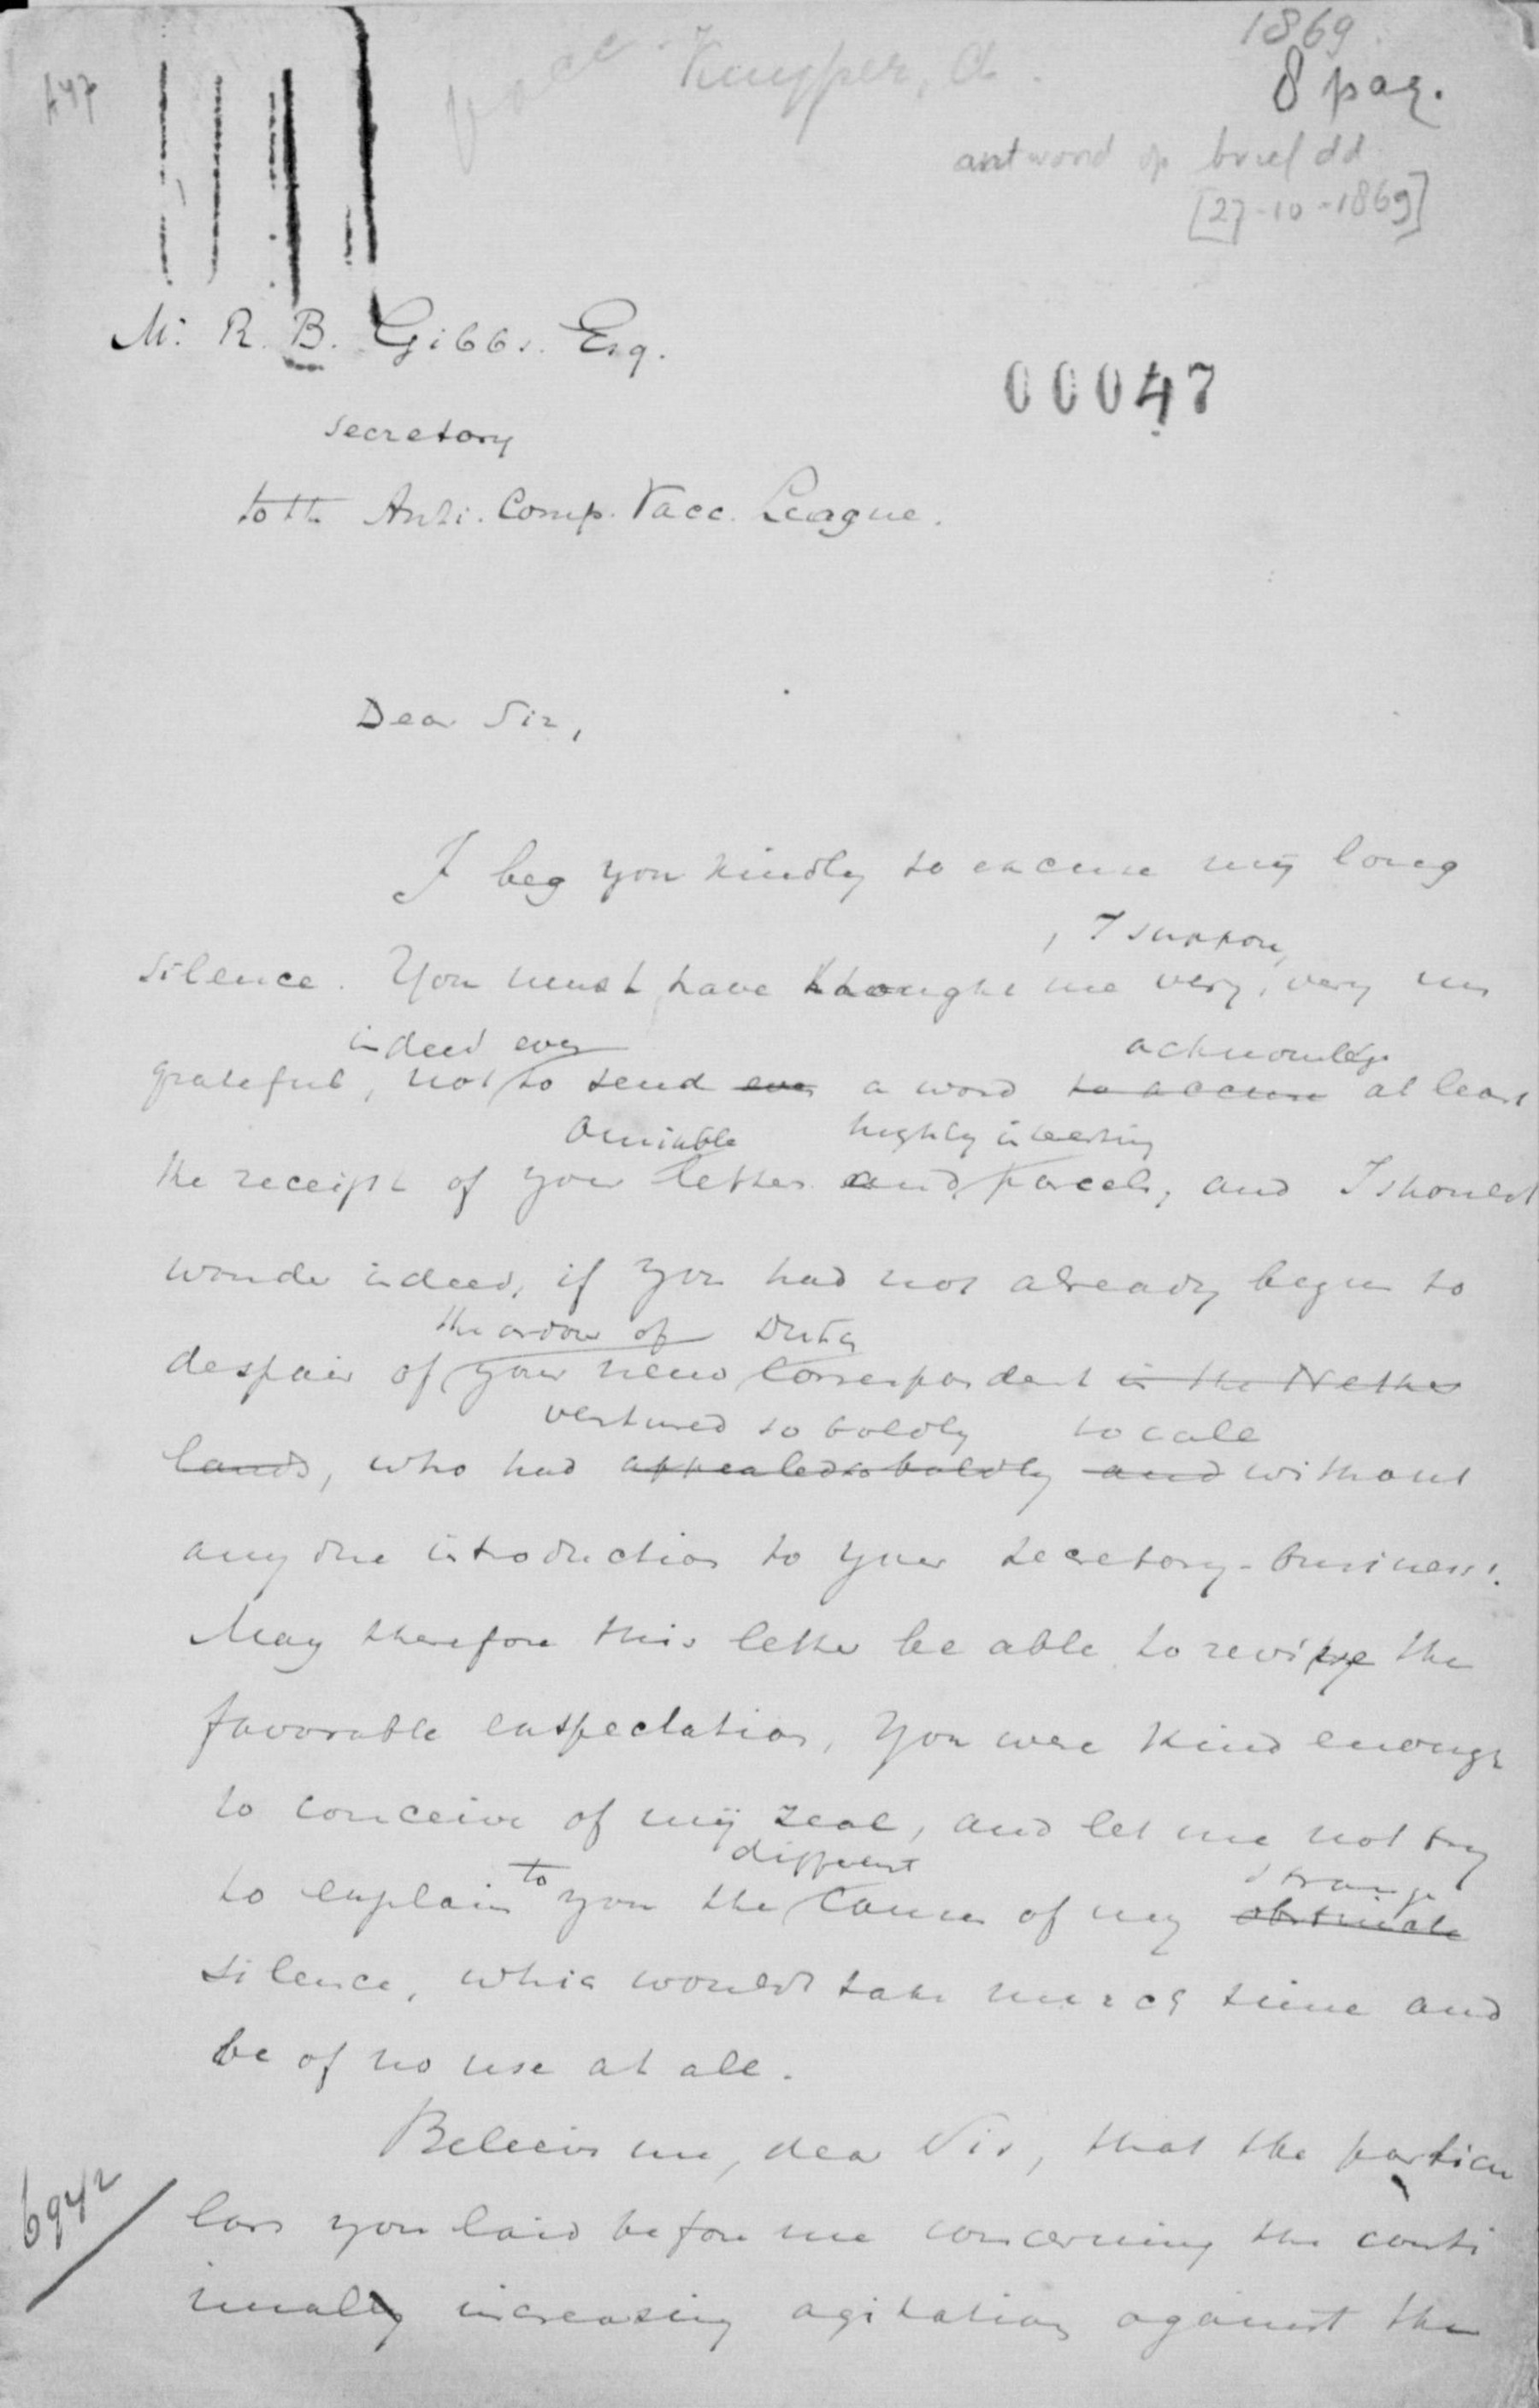 1869
Kuyper, A.
8 pag.
antwoord op brief dd
[27-10-1869]
Mr. R. B. Gibbs. Esq.
00047
secretary
to th Anti. Comp. Vacc. League.
Dear Sir,
I beg you kindly to excuse my long
, I suppose,
silence. You must have thought me very, very un
indeed even
acknowledge
grateful, not to send even a word to accuse at least
amiable highly interesting
the receipt of your letter and parcels, and I should
wonder indeed, if you had not already begun to
the ardour of Dutch
despair of your new correspondent in the Nether
ventured so boldly to call
lands, who had appealed so boldly and without
any due introduction to your secretary-business!
May therefore this letter be able to revive the
favorable exspectation, you were kind enough
to conceive of my zeal, and let me not try
different
strange
to explain to you the causes of my obstinate
silence, which would take much time and
be of no use at all.
Believe me, dear Sir, that the particu
lars you laid before me concerning the conti
nually increasing agitation against the